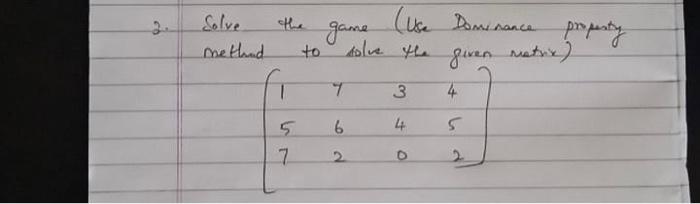 2. Solve the game (Use Dominance property
method to solve the given matrix)
1 7 3 4
5 6 4 5
7 2 0 2